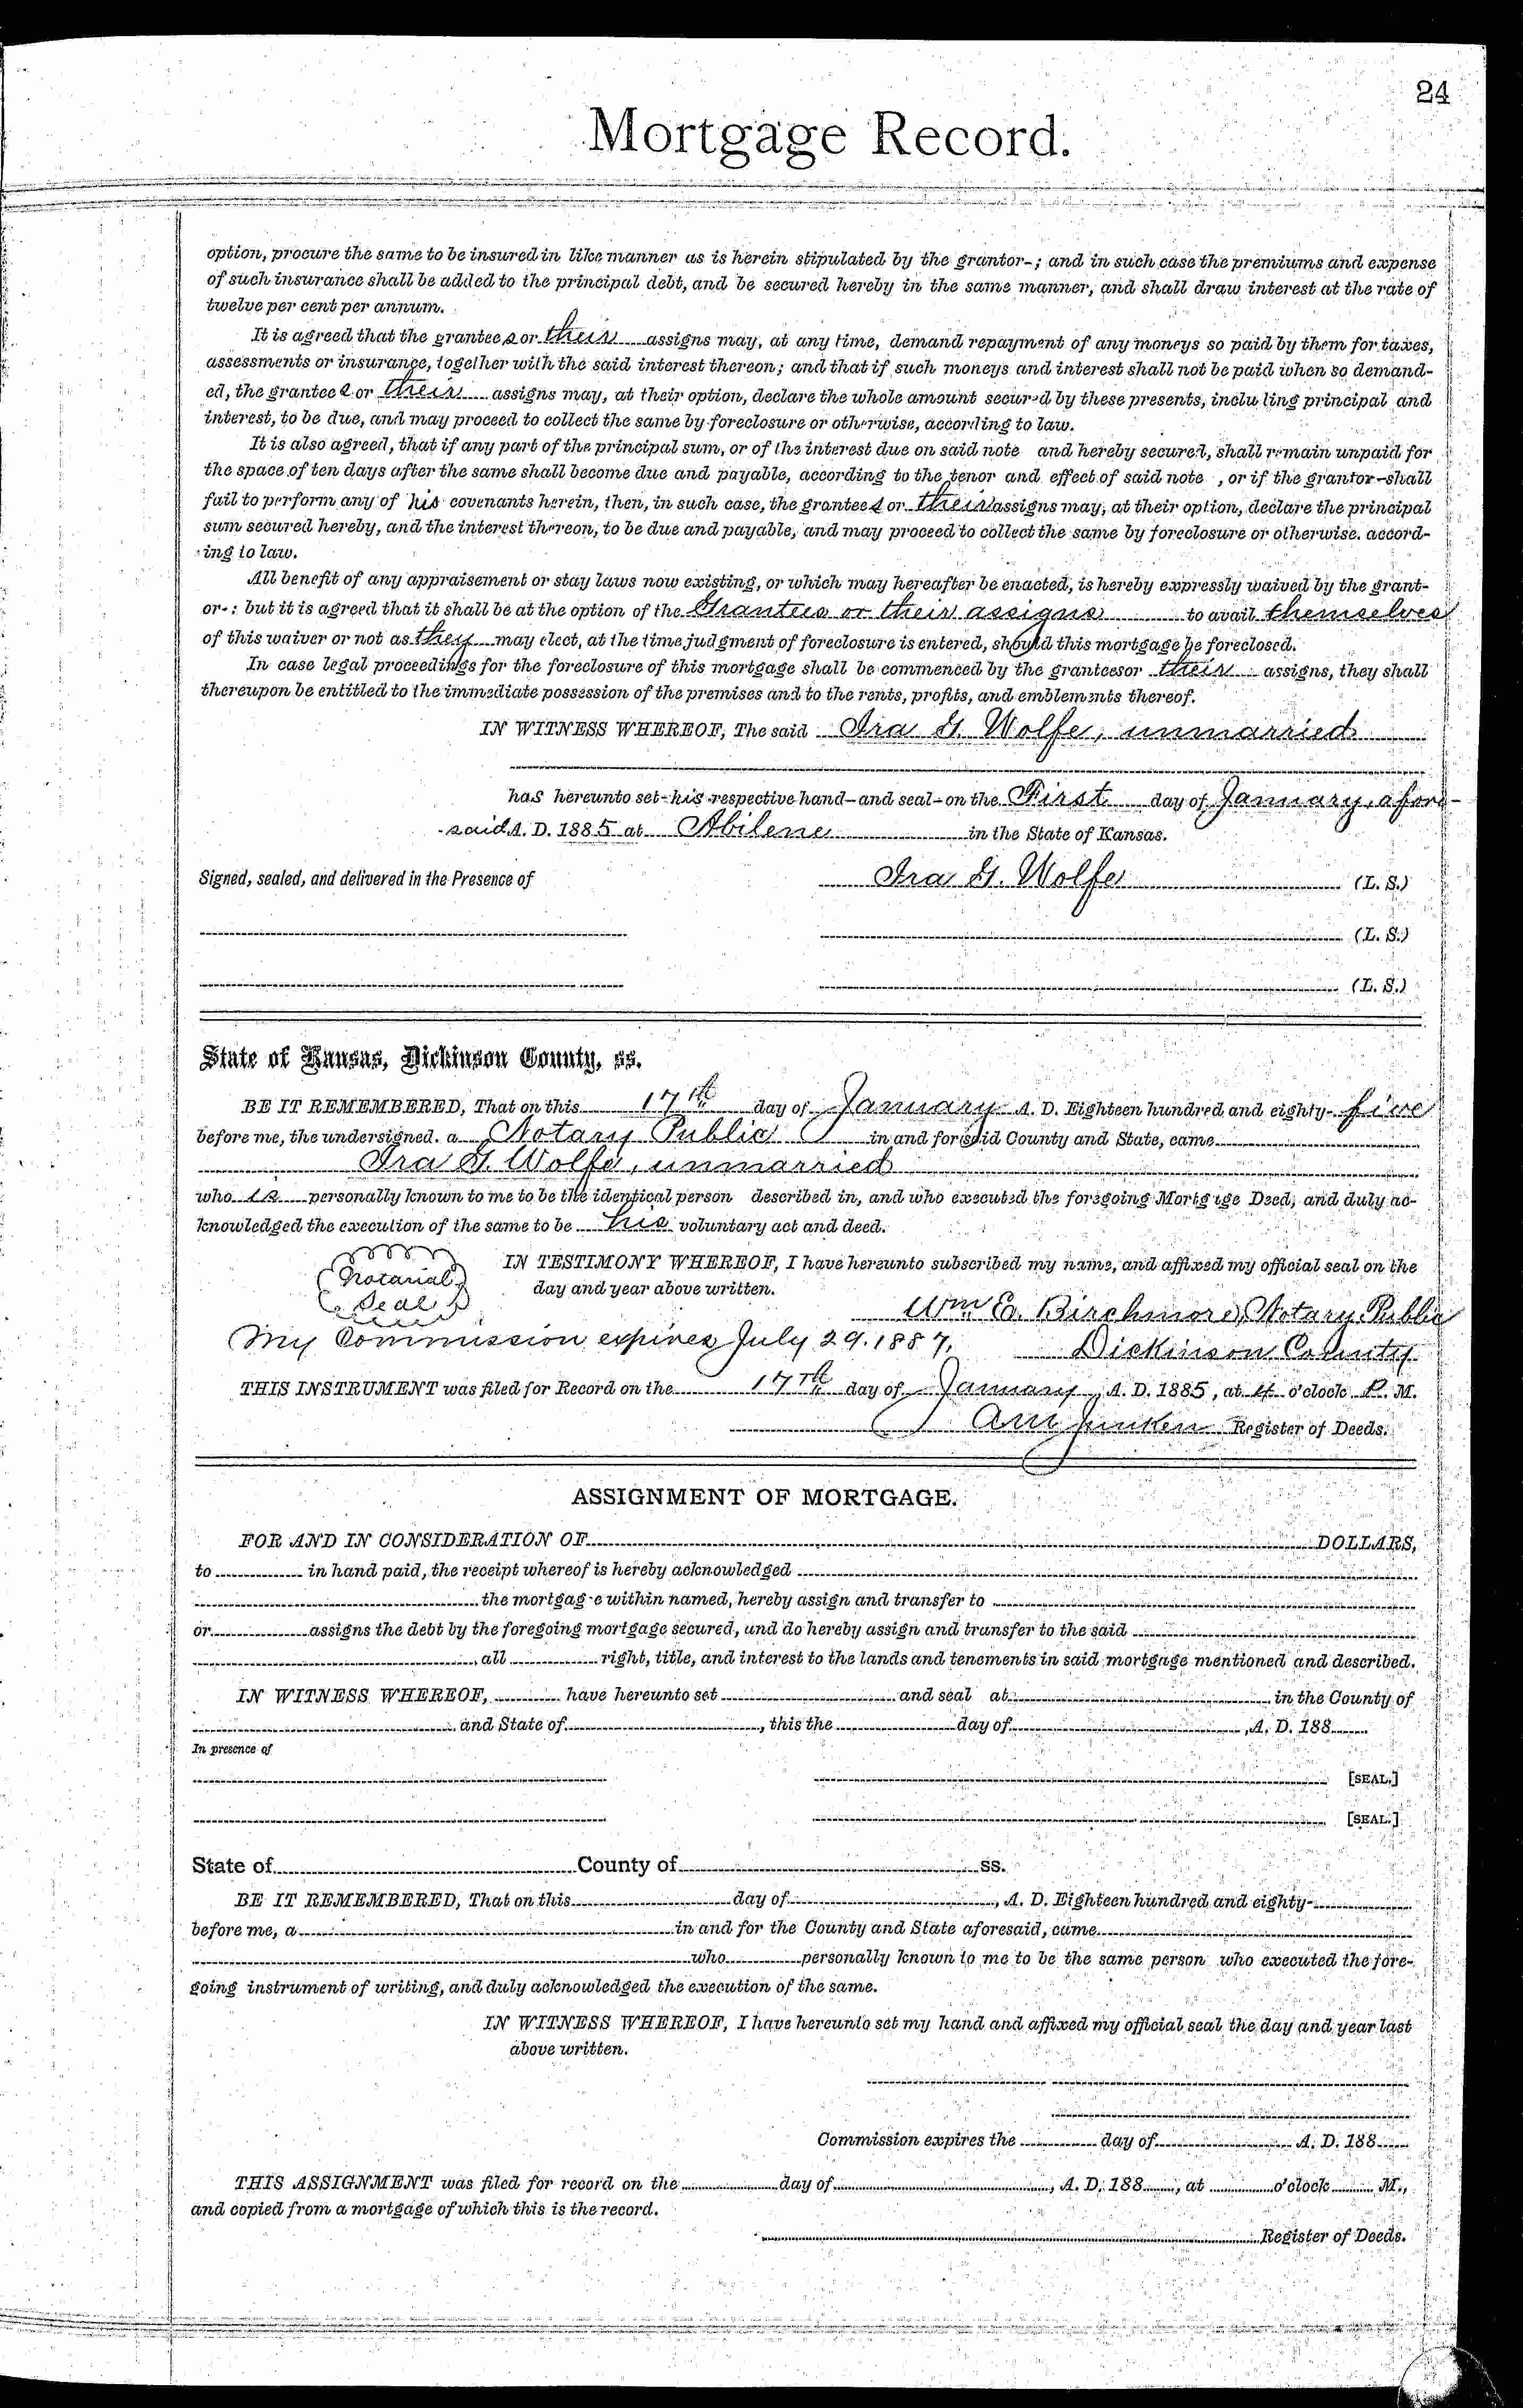 24
Mortgage Record.
option, procure the same to be insured in like manner as is herein stipulated by the grantor-; and in such case the premiums and expense
of such insurance shall be added to the principal debt, and be secured hereby in the same manner, and shall draw interest at the rate of
twelve per cent per annum.
It is agreed that the grantees or their assigns may, at any time, demand repayment of any moneys so paid by them for taxes,
assessments or insurance, together with the said interest thereon; and that if such moneys and interest shall not be paid when so demand-
ed, the grantees or their assigns may, at their option, declare the whole amount secured by these presents, including principal and
interest, to be due, and may proceed to collect the same by foreclosure or otherwise, according to law.
It is also agreed, that if any part of the principal sum, or of the interest due on said note and hereby secured, shall remain unpaid for
the space of ten days after the same shall become due and payable, according to the tenor and effect of said note , or if the grantor-shall
fail to perform any of his covenants herein, then, in such case, the grantees or their assigns may, at their option, declare the principal
sum secured hereby, and the interest thereon, to be due and payable, and may proceed to collect the same by foreclosure or otherwise. accord-
ing to law.
All benefit of any appraisement or stay laws now existing, or which may hereafter be enacted, is hereby expressly waived by the grant-
or-: but it is agreed that it shall be at the option of the Grantees or their assigns to avail themselves
of this waiver or not as they may elect, at the time judgment of foreclosure is entered, should this mortgage be foreclosed.
In case legal proceedings for the foreclosure of this mortgage shall be commenced by the grantees or their assigns, they shall
thereupon be entitled to the immediate possession of the premises and to the rents, profits, and emblements thereof.
IN WITNESS WHEREOF, The said Ira G. Wolfe, unmarried
has hereunto set-his respective hand-and seal-on the First day of January, afore-
said A. D. 1885 at Abilene in the State of Kansas.
Signed, sealed, and delivered in the Presence of Ira G. Wolfe (L. S.)
(L. S.)
(L. S.)
State of Kansas, Dickinson County, ss.
BE IT REMEMBERED, That on this 17th day of January A. D. Eighteen hundred and eighty-five
before me, the undersigned. a Notary Public in and for said County and State, came
Ira G. Wolfe, unmarried
who is personally known to me to be the identical person described in, and who executed the foregoing Mortgage Deed, and duly ac-
knowledged the execution of the same to be his voluntary act and deed.
IN TESTIMONY WHEREOF, I have hereunto subscribed my name, and affixed my official seal on the
Notarial
Seal
day and year above written.
Wm E. Birchmore, Notary Public
My Commission expires July 29. 1887. Dickinson County
THIS INSTRUMENT was filed for Record on the 17th day of January, A. D. 1885, at 4 o'clock P. M.
Junken Register of Deeds.
ASSIGNMENT OF MORTGAGE.
FOR AND IN CONSIDERATION OF DOLLARS,
to in hand paid, the receipt whereof is hereby acknowledged
the mortgag-e within named, hereby assign and transfer to
or assigns the debt by the foregoing mortgage secured, and do hereby assign and transfer to the said
, all right, title, and interest to the lands and tenements in said mortgage mentioned and described.
IN WITNESS WHEREOF, have hereunto set and seal at in the County of
and State of , this the day of , A. D. 188
In presence of
[SEAL.]
[SEAL.]
State of County of ss.
BE IT REMEMBERED, That on this day of , A. D. Eighteen hundred and eighty-
before me, a in and for the County and State aforesaid, came
who personally known to me to be the same person who executed the fore-
going instrument of writing, and duly acknowledged the execution of the same.
IN WITNESS WHEREOF, I have hereunto set my hand and affixed my official seal the day and year last
above written.
Commission expires the day of A. D. 188
THIS ASSIGNMENT was filed for record on the day of , A. D. 188 , at o'clock M.,
and copied from a mortgage of which this is the record.
Register of Deeds.